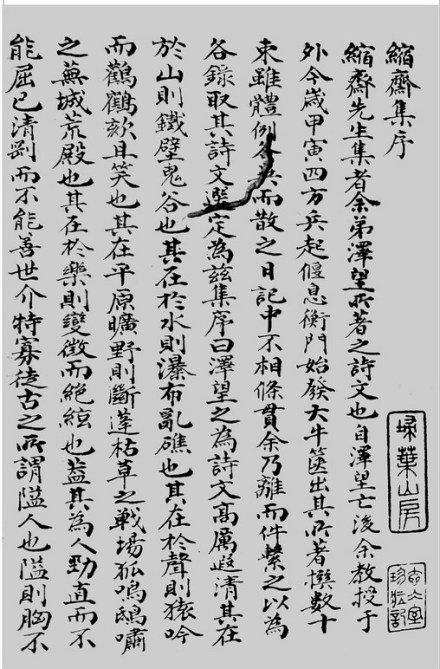 縮齋集序
縮齋先生集者余弟澤望所著之詩文也自澤望亡後余教授于
外今歲甲寅四方兵起偃息衡門始發大牛篋出其所著撰數十
束雖體例各異而散之日記中不相條貫余乃離而件繫之以為
各錄取其詩文選定為茲集序曰澤望之為詩文高厲遐清其在
於山則鐵壁鬼谷也其在於水則瀑布亂礁也其在於聲則猿吟
而鸛鶴欬且笑也其在平原曠野則斷蓬枯草之戰場狐鳴鴟嘯
之蕪城荒殿也其在於樂則變徵而絕絃也蓋其為人勁直而不
能屈己清剛而不能善世介特寡徒古之所謂隘人也隘則胸不
埽葉山房